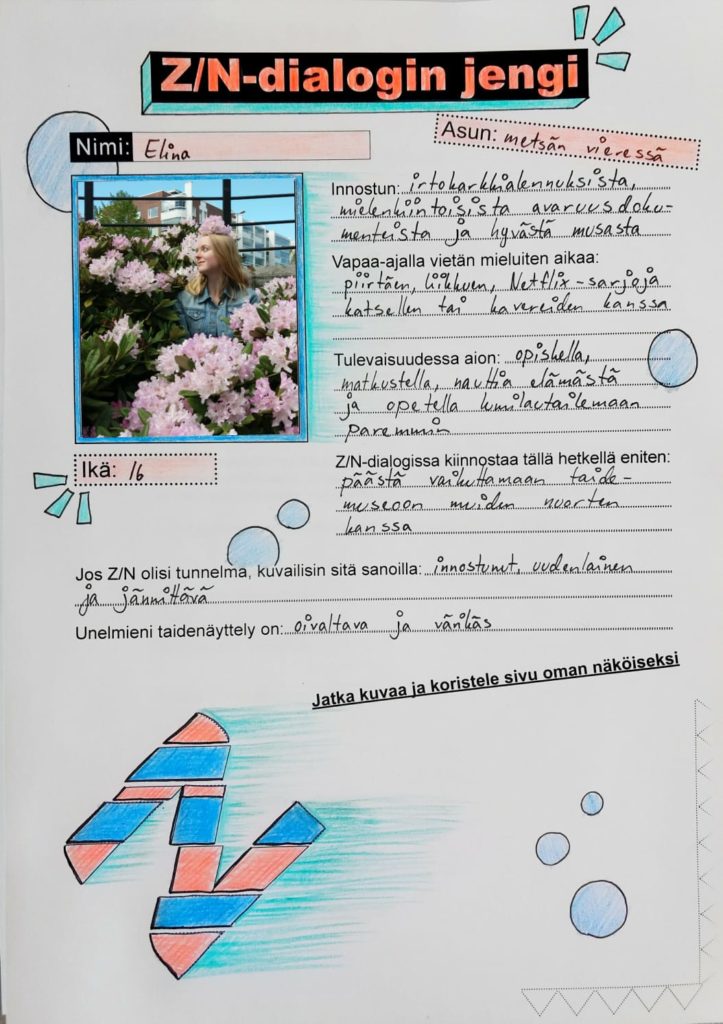 Z/N-dialogin jengi
Nimi: Elina
Asun: metsän vieressä
Innostun: irtokarkkialennuksista,
mielenkiintoisista avaruusdoku-
menteista ja hyvästä musasta
Vapaa-ajalla vietän mieluiten aikaa:
piirtäen, liikkuen, Netflix-sarjoja
katsellen tai kavereiden kanssa
Tulevaisuudessa aion: opiskella,
matkustella, nauttia elämästä
ja opetella lumilautailemaan
paremmin
Ikä: 16
Z/N-dialogissa kiinnostaa tällä hetkellä eniten:
päästä vaikuttamaan taide-
museoon muiden nuorten
kanssa
Jos Z/N olisi tunnelma, kuvailisin sitä sanoilla: innostunut, uudenlainen
ja jännittävä
Unelmieni taidenäyttely on: oivaltava ja vänkäs
Jatka kuvaa ja koristele sivu oman näköiseksi